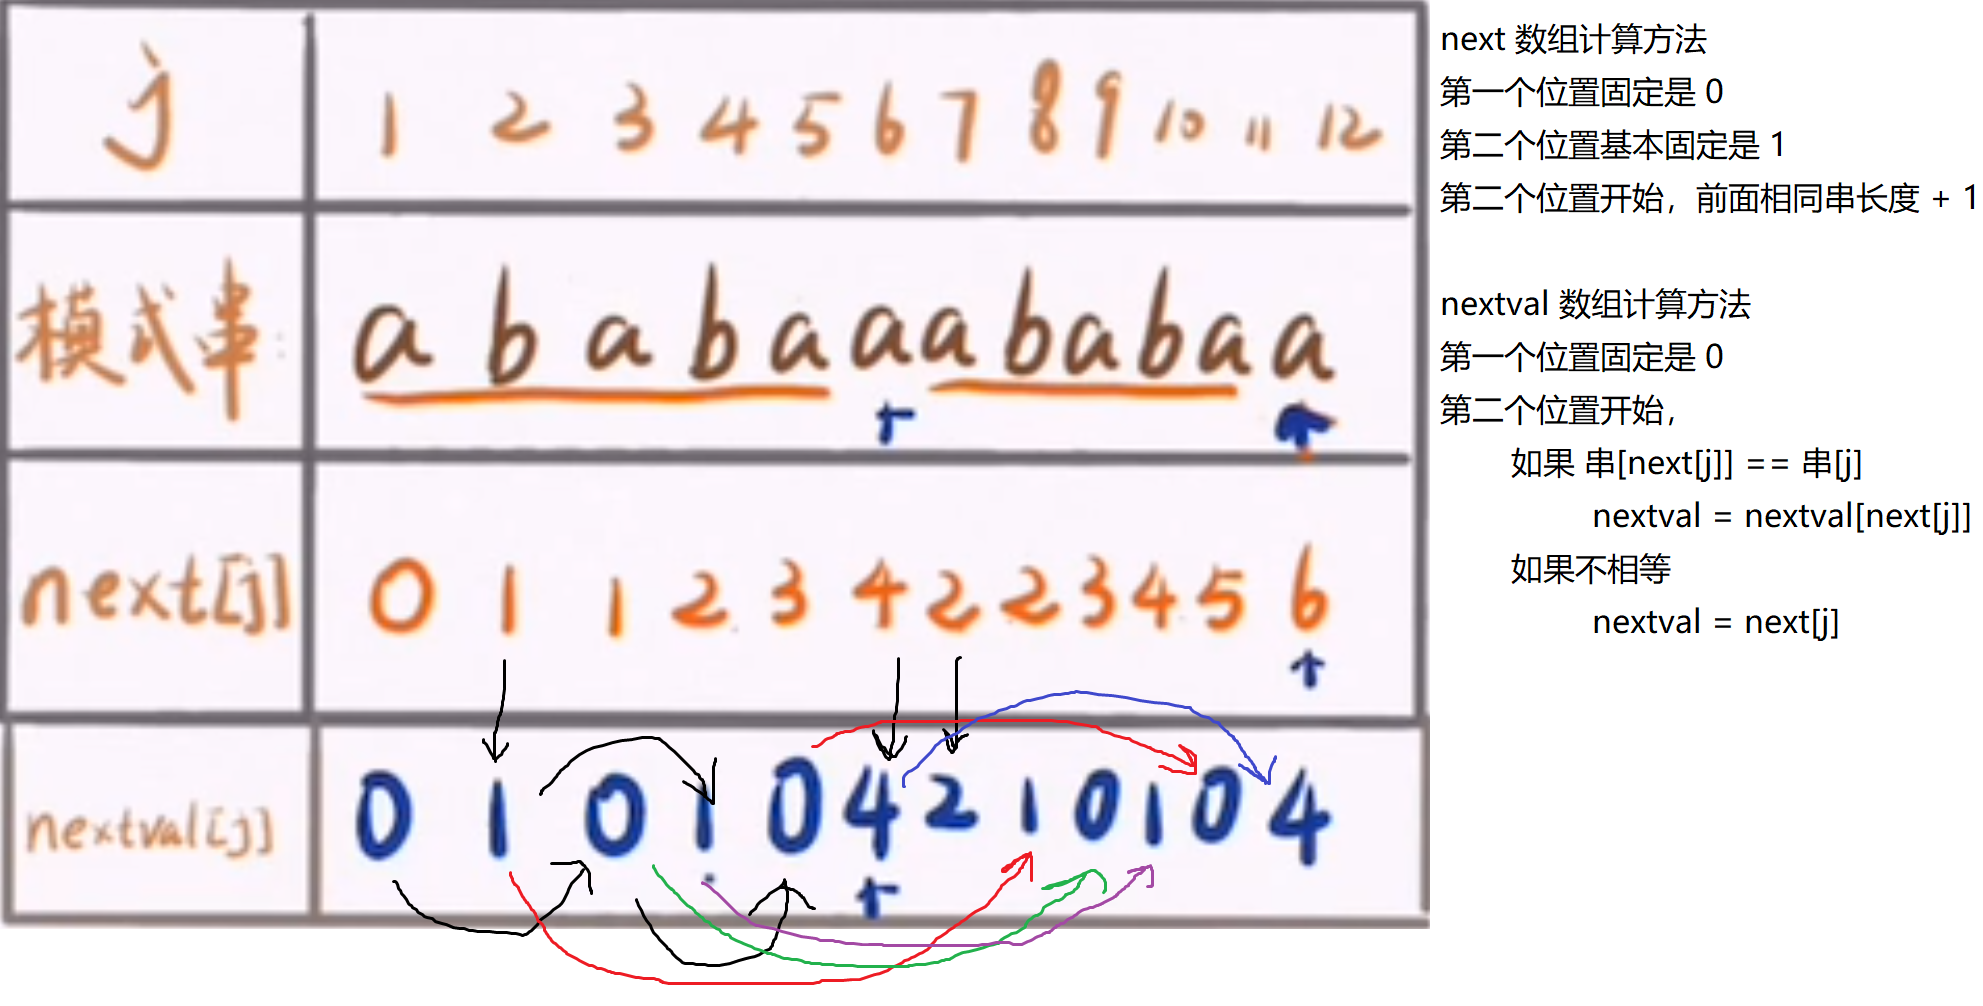 j 1 2 3 4 5 6 7 8 9 10 11 12
模式串: a b a b a a a b a b a a
next[j] 0 1 1 2 3 4 2 2 3 4 5 6
nextval[j] 0 1 0 1 0 4 2 1 0 1 0 4
next 数组计算方法
第一个位置固定是 0
第二个位置基本固定是 1
第二个位置开始，前面相同串长度 + 1
nextval 数组计算方法
第一个位置固定是 0
第二个位置开始，
如果 串[next[j]] == 串[j]
nextval = nextval[next[j]]
如果不相等
nextval = next[j]